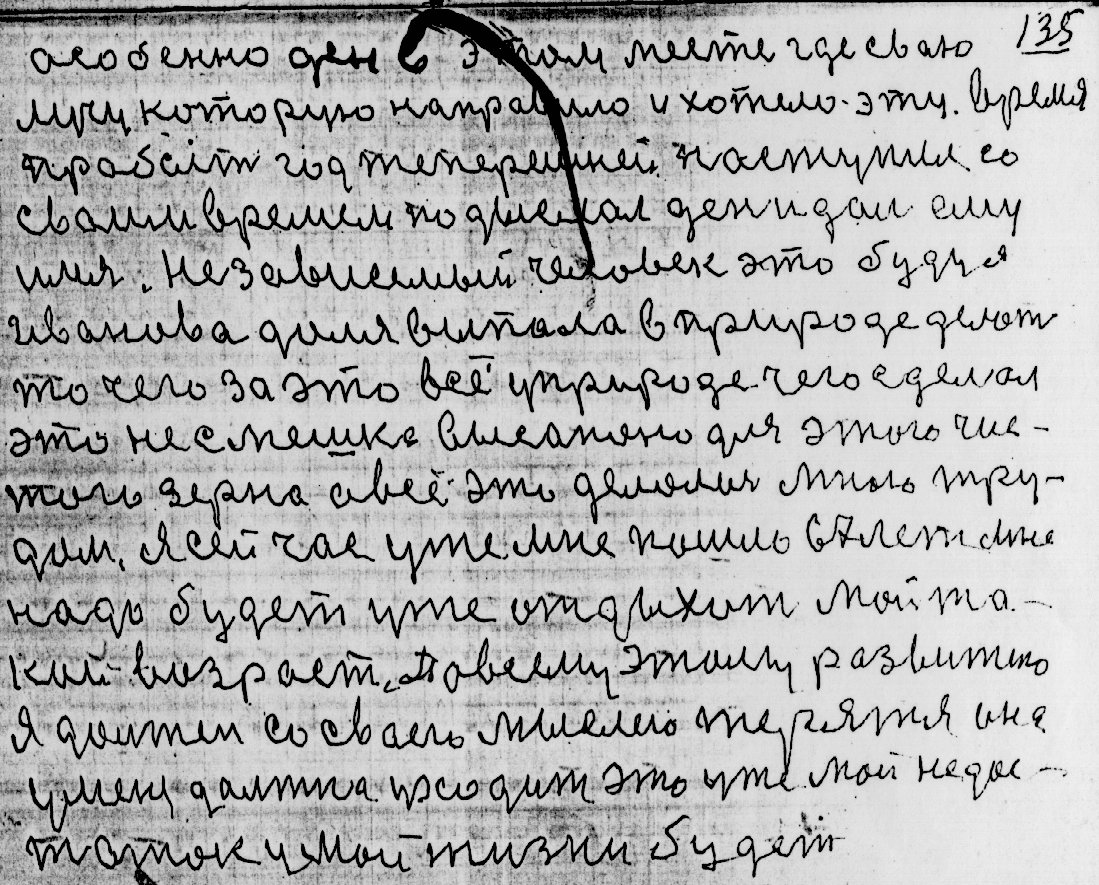 135
асобенно ден в этом месте где сваю
мучу которую направило и хотело эту. время
год теперешней наступил со
сваим времем подыемал ден и дал ему
имя. Независемый человек это будуя
Иванова доля выпала в природе делат
то чего за это всё у природе чего сделал
это не смешка высапано для этого чис-
того зерна а всё это делолия много тру-
дом. Я сей час уже мне пошло 67 лет мне
надо будет уже отдыхат мой та-
кой возраст. По всему этому развитию
я должен со сваею мыслею терятя она
у мени должна уходит это уже мой недос-
таток у мои жизни будет